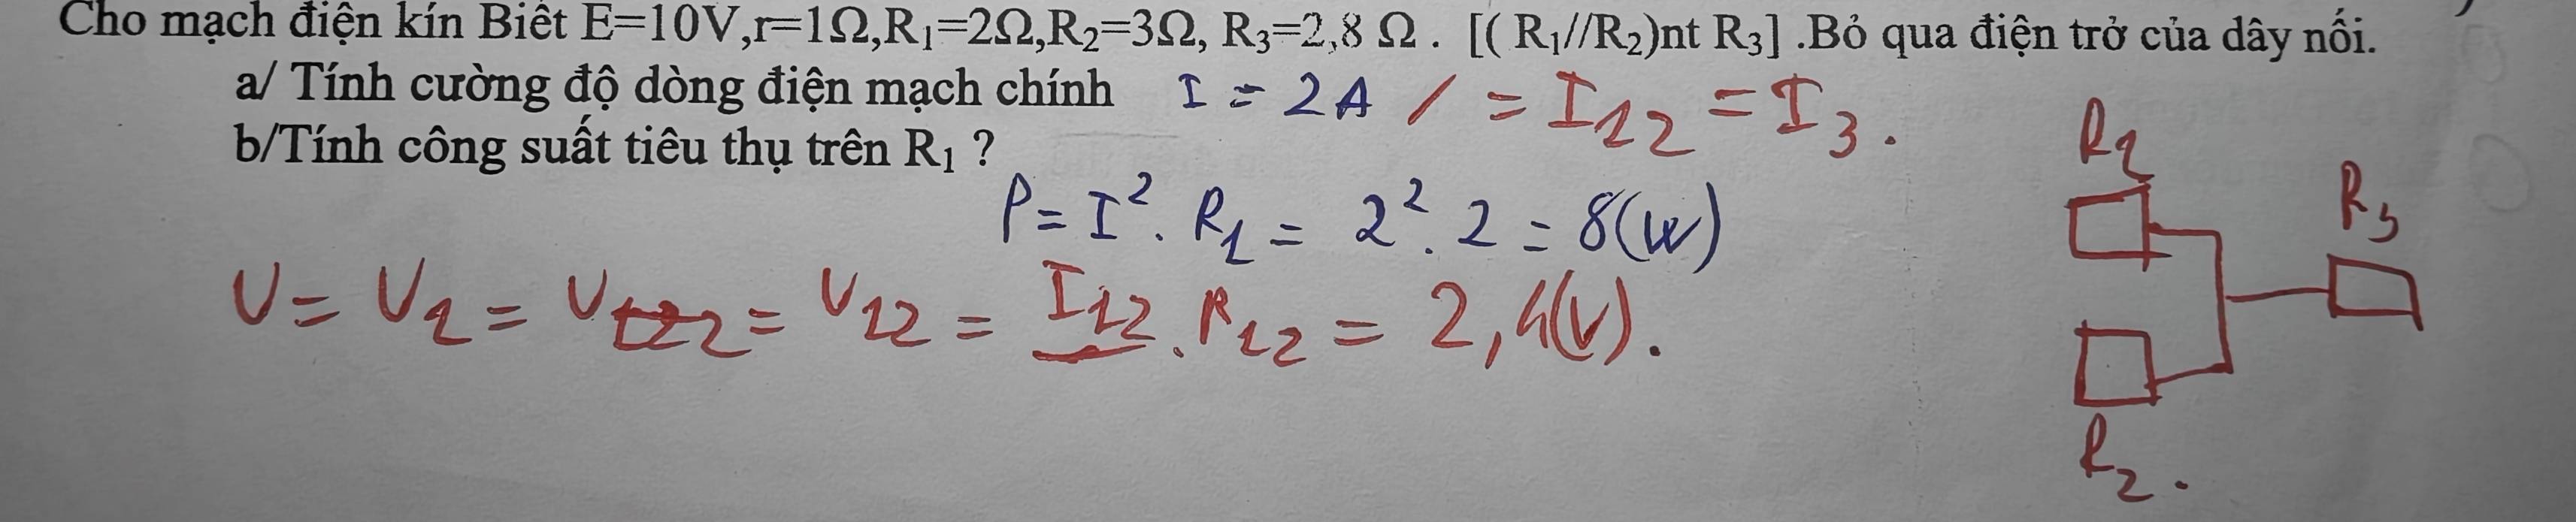 Cho mạch điện kín Biết E=10V,r=1Ω,R₁=2Ω,R₂=3Ω, R₃=2,8 Ω . [( R₁//R₂)nt R₃] .Bỏ qua điện trở của dây nối.
a/ Tính cường độ dòng điện mạch chính I = 2A / = I₁₂ = I₃.
b/Tính công suất tiêu thụ trên R₁ ?
P = I². R₁ = 2². 2 = 8(W)
U = U₁ = U₂ = U₁₂ = I₁₂. R₁₂ = 2,4(V).
R₁
R₃
R₂.